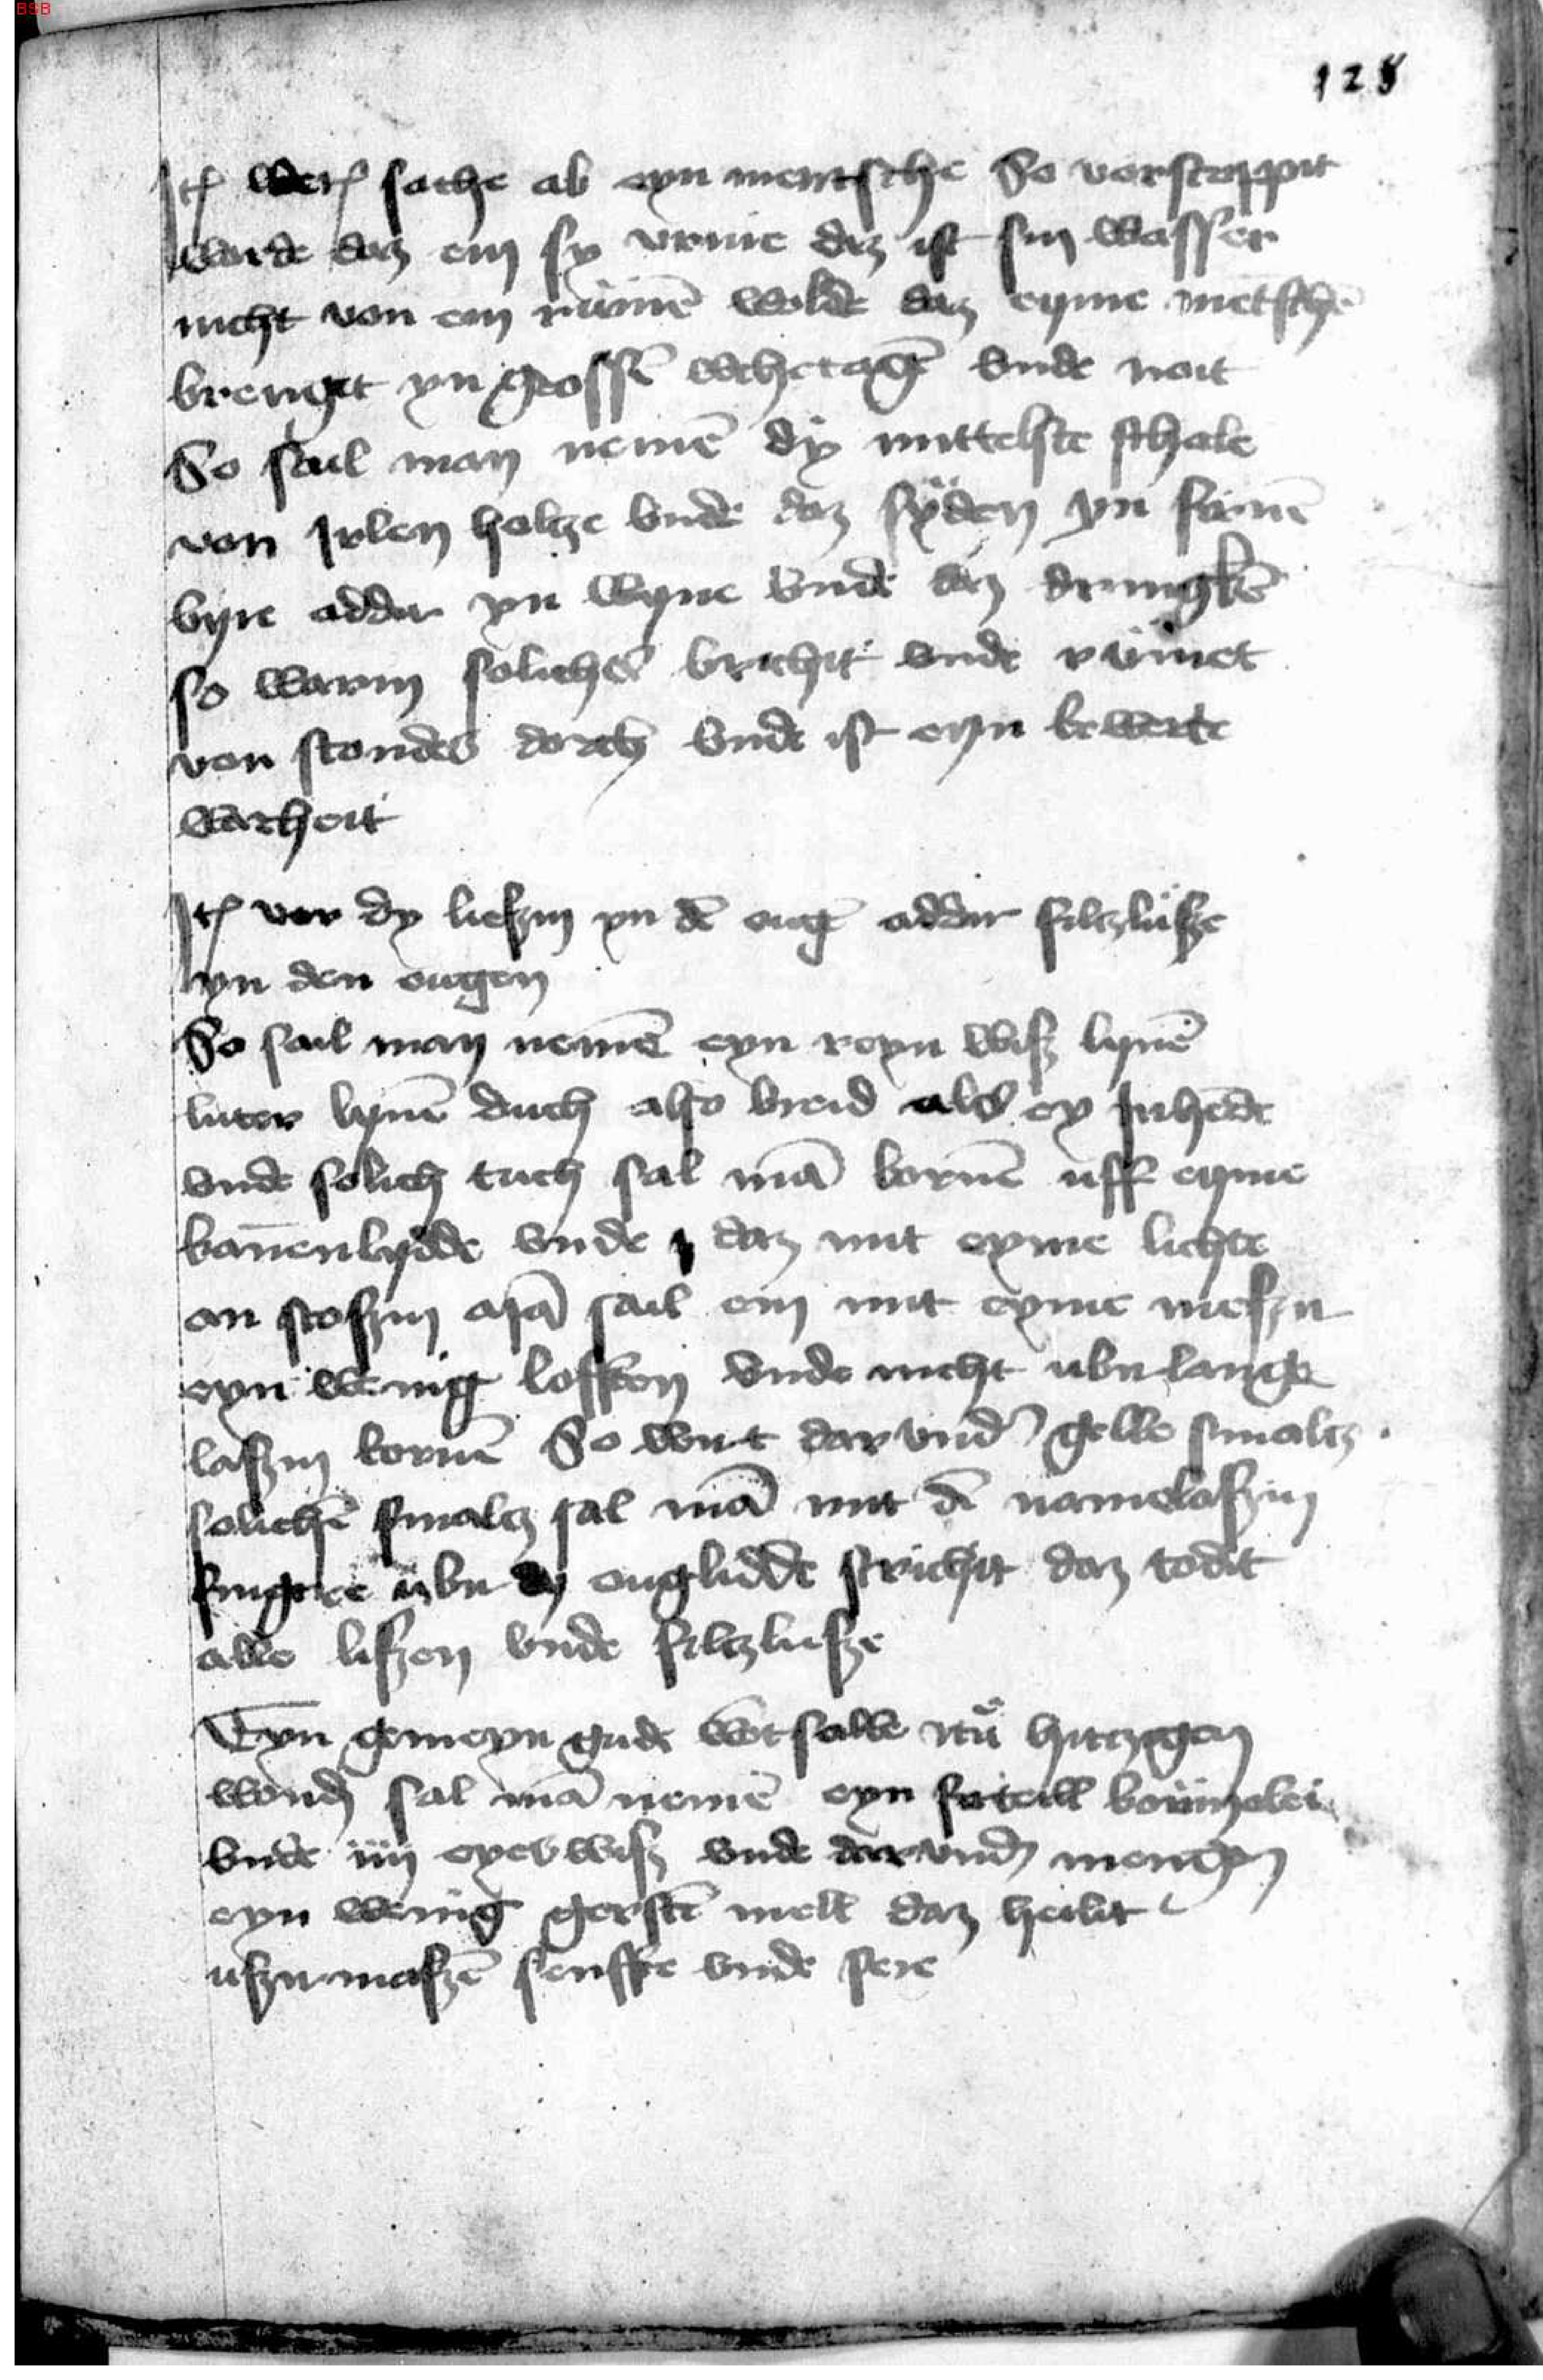 BSB
128
Itē werꝭ sache ab eyn mentsche So vorstoppit
wurde daz em sy vrine daz ist sin wasser
nicht von em rümē wolde daz eyme mētschē
brenget yn grossē wehetagē vnde noit
So sail man nemē dy mittelste schale
von Irlen holtze vnde daz syden yn firnē
byre addir yn wyne vnde daz dringkē
so warm soliches brichit vnde rümet
von stondes dorch vnde ist eyn bewerte
warheit
Itē vor dy lieszin yn dē ougē addir filtzlüsze
yn den ougen
So sail man nemē eyn reyn wisz lynē
luter lynē duch also breid als ey
vnde solich tuch sal mā bornē uff eyme
kannenlydde vnde daz mit eyme lichte
an stoszin sail em mit eyme meszir
eyn wenig lofften vnde nicht ubir lange
laszin bornē So wirt dar vndꝭ gelle smaltz
solichē smaltz sal mā mit dē namelaszin
fingere übir dy ouglidde strichit daz todit
alle liszen vnde filtzlusze
Eyn gemeyn gude wotsalbe zcü hitczigen
wondꝭ sal mā nemē eyn firteill boümolei
vnde iiij eyes wisz vnde dar vndꝭ mengen
eyn wenig gerstē mell daz heilit
uszir maszē senffte vnde sere